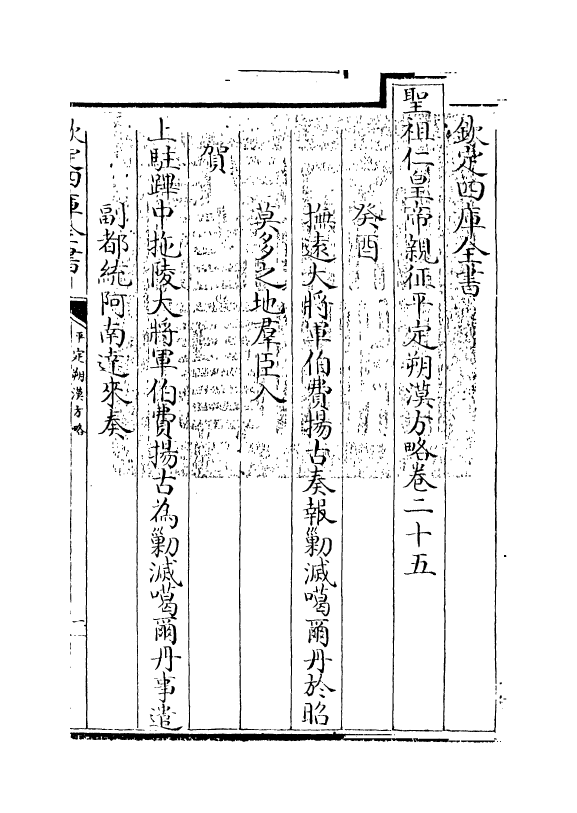 欽定四庫全書
聖祖仁皇帝親征平定朔漠方略卷二十五
癸酉
撫遠大將軍伯費揚古奏報勦滅噶爾丹於昭
莫多之地羣臣入
賀
上駐蹕中拖陵大將軍伯費揚古為勦滅噶爾丹事遣
副都統阿南達來奏
欽定四庫全書
平定朔漠方略